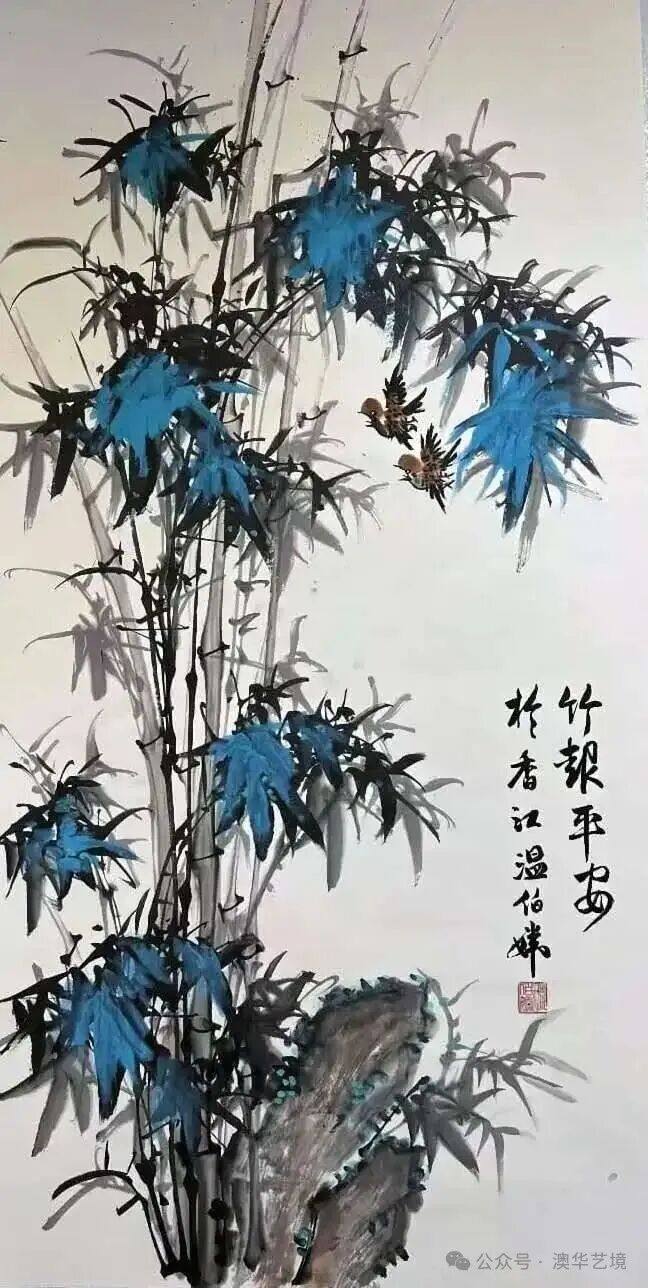 竹報平安
於香江温伯嫦
公众号 · 澳华艺境